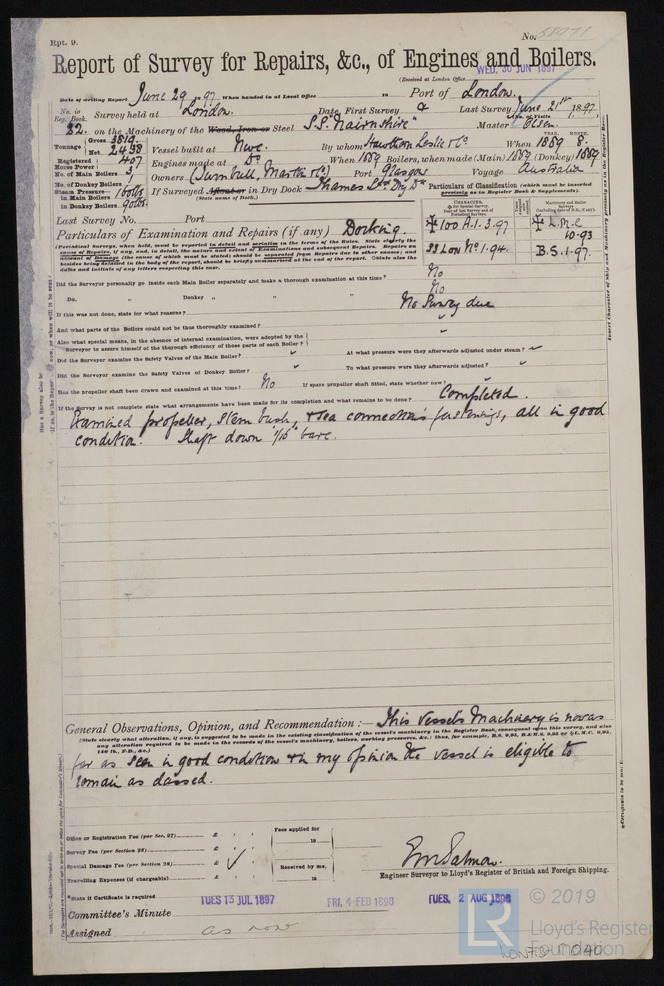 Rpt. 9.
No. 58071
Report of Survey for Repairs, &c., of Engines and Boilers.
(Received at London Office WED. 30 JUN 1897
Date of writing Report June 29 1897 When handed in at Local Office 18 Port of London.
No. in Reg. Book. Survey held at London. Date, First Survey Last Survey June 21st 1897
22. on the Machinery of the Wood, Iron or Steel S.S. "Nairnshire" Master Olsen.
Tonnage Gross 3819. Net 2438 Vessel built at Nwc. By whom Hawthorn Leslie & Co. When 1889 8.
Registered Horse Power 407 Engines made at Do When 1889 Boilers, when made (Main) 1889 (Donkey) 1889
No. of Main Boilers 3 Owners (Turnbull, Martin & Co) Port Glasgow Voyage Australia
No. of Donkey Boilers
Steam Pressure in Main Boilers 160lbs If Surveyed Afloat or in Dry Dock Thames
in Donkey Boilers 90lbs. (State name of Dock.)
Particulars of Classification (which must be inserted precisely as in Register Book & Supplements).
Last Survey No. Port
100 A.1. 3.97 L.M.C 10.93
SS LON No 1.94. B.S. 1.97.
Particulars of Examination and Repairs (if any) Docking.
Did the Surveyor personally go inside each Main Boiler separately and make a thorough examination at this time? No
Do. " Donkey " " " No
If this was not done, state for what reasons? No Survey due
And what parts of the Boilers could not be thus thoroughly examined? "
Also what special means, in the absence of internal examination, were adopted by the
Surveyor to assure himself of the thorough efficiency of those parts of each Boiler? "
Did the Surveyor examine the Safety Valves of the Main Boiler? " At what pressure were they afterwards adjusted under steam? "
Did the Surveyor examine the Safety Valves of Donkey Boiler? " To what pressure were they afterwards adjusted? "
Has the propeller shaft been drawn and examined at this time? No If spare propeller shaft fitted, state whether new? "
If the Survey is not complete state what arrangements have been made for its completion and what remains to be done? Completed.
Examined propeller, stern bush, & sea connections fastenings, all in good
condition. Shaft down 1/16 bare.
General Observations, Opinion, and Recommendation:— This vessel's Machinery is now as
(State clearly what alteration, if any, is suggested to be made in the existing classification of the vessel's machinery in the Register Book, consequent upon this survey, and also
any alteration required to be made in the records of the vessel's machinery, boilers, working pressures, &c.; thus, for example, B.S. 9,95, B.&M.S. 9,95 or L.M.C. 9,95,
140 lb., F.D., &c.)
far as seen in good condition & in my opinion the vessel is eligible to
remain as classed.
Office or Registration Fee (per Sec. 27) £ Fees applied for
Survey Fee (per Section 28) £ 18
Special Damage Fee (per Section 28) £ Received by me,
Travelling Expenses (if chargeable) £ 18
Engineer Surveyor to Lloyd's Register of British and Foreign Shipping.
State if Certificate is required
TUES 13 JUL 1897 FRI. 4 FEB 1898 TUES. 2 AUG 1898
Committee's Minute
Assigned as now
LR © 2019
Lloyd's Register
Foundation